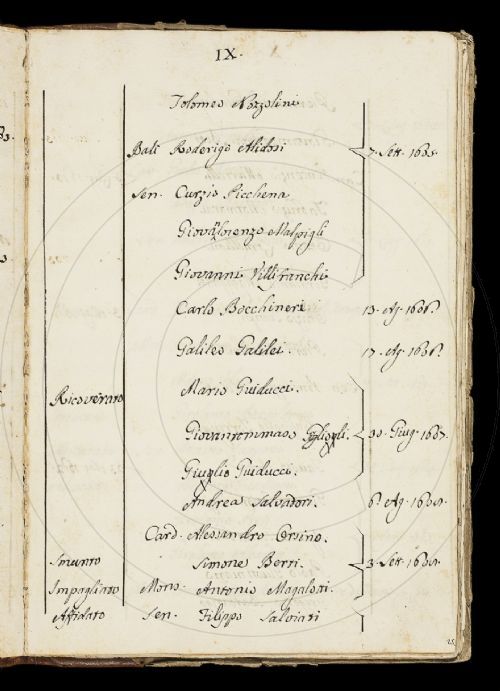 IX.
Tolomeo Nozzolini
Balì Roderigo Alidosi 7. Sett. 1605.
Sen. Curzio Picchena
Giovanlorenzo Malpigli
Giovanni Villifranchi
Carlo Bocchineri 13. Ag.
Galileo Galilei. 17. Ag.
Ricoverato Mario Guiducci.
Giovantommaso 30. Giug.
Giulio Guiducci.
Andrea Salvadori. 6. Ag.
Card. Alessandro Orsino.
Smunto Simone Berti. 3. Sett.
Impagliato Mons. Antonio Magalotti.
Affidato Sen. Filippo Salviati